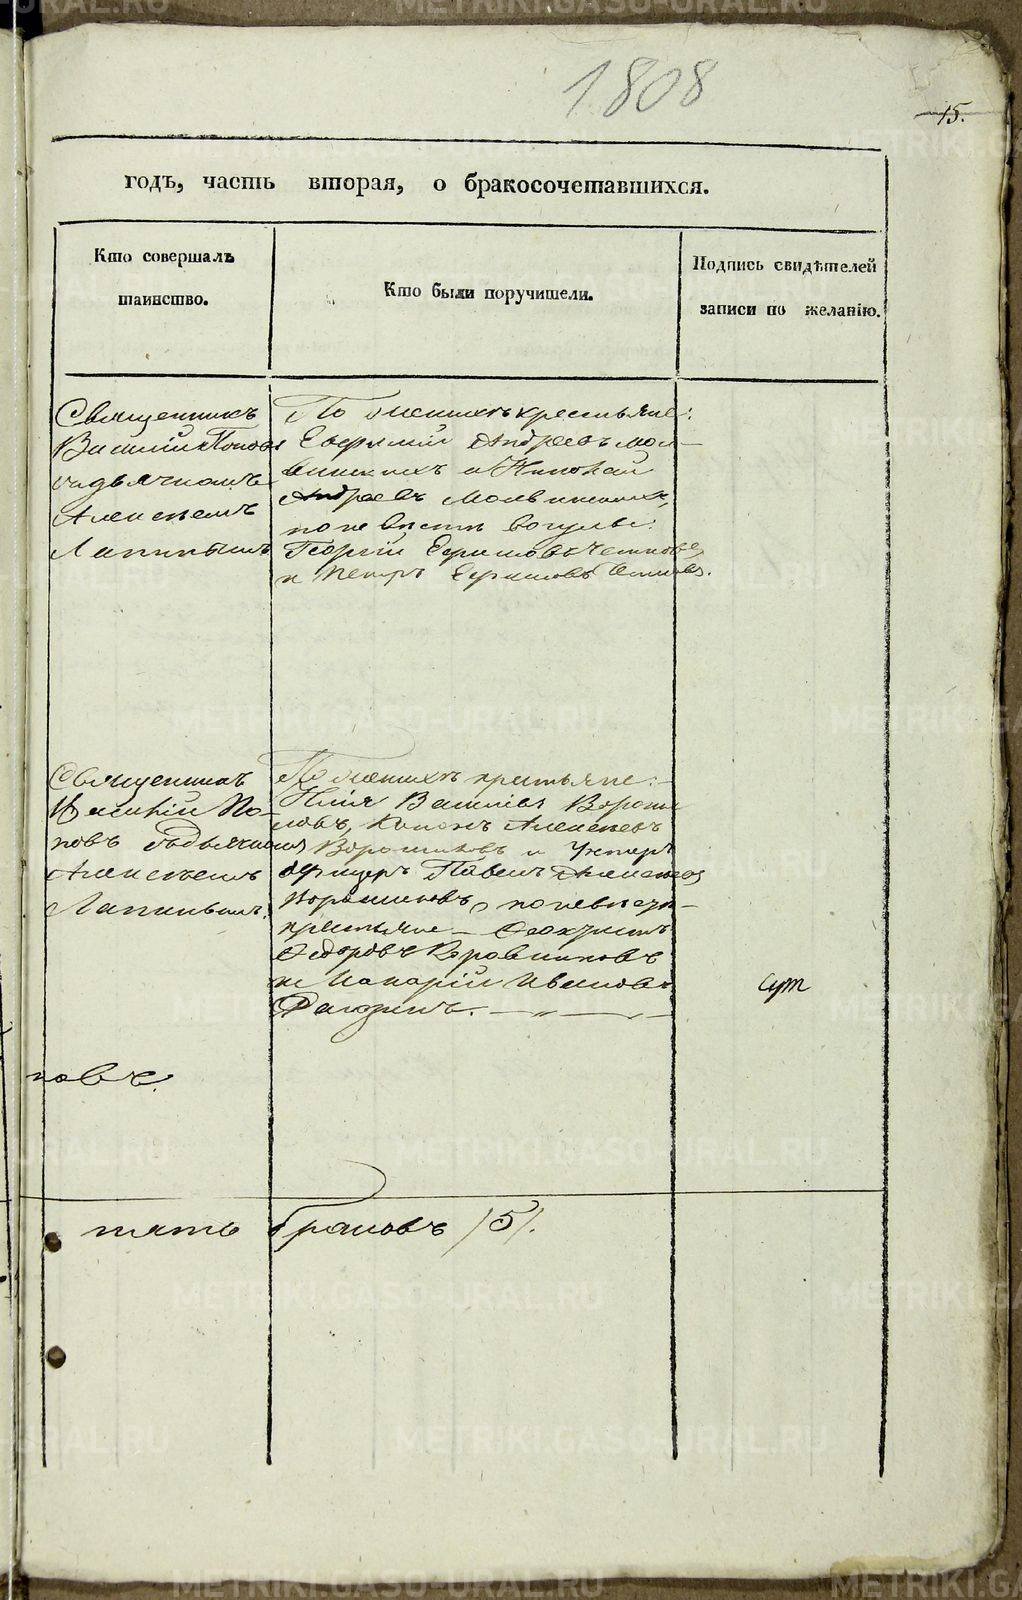 1808
15.
годъ, часть вторая, о бракосочетавшихся.
Кто совершалъ
таинство.
Кто были поручители.
Подпись свидѣтелей
записи по желанію.
Священникъ
Василій Поповъ
съ дьячкомъ
Алексѣемъ
Лапинымъ
По женихѣ крестьяне:
Евфимій Андреевъ Мол-
винскихъ и Николай
Андреевъ Молвинскихъ,
по невѣстѣ вогулы:
Георгій Ефимовъ
и Петръ Ефимовъ
Священникъ
Василій По-
повъ съ дьячкомъ
Алексѣемъ
Лапинымъ.
По женихѣ крестьяне:
Илія Васильевъ Вороши-
ловъ, Алексѣевъ
Ворошиловъ и Унтеръ
офицеръ Павелъ Алексѣевъ
Ворошиловъ, по невѣстѣ
крестьяне Феоктистъ
Федоровъ Коровниковъ
и Макарій Ивановъ
повъ.
пять браковъ /5/.
METRIKI.GASO-URAL.RU